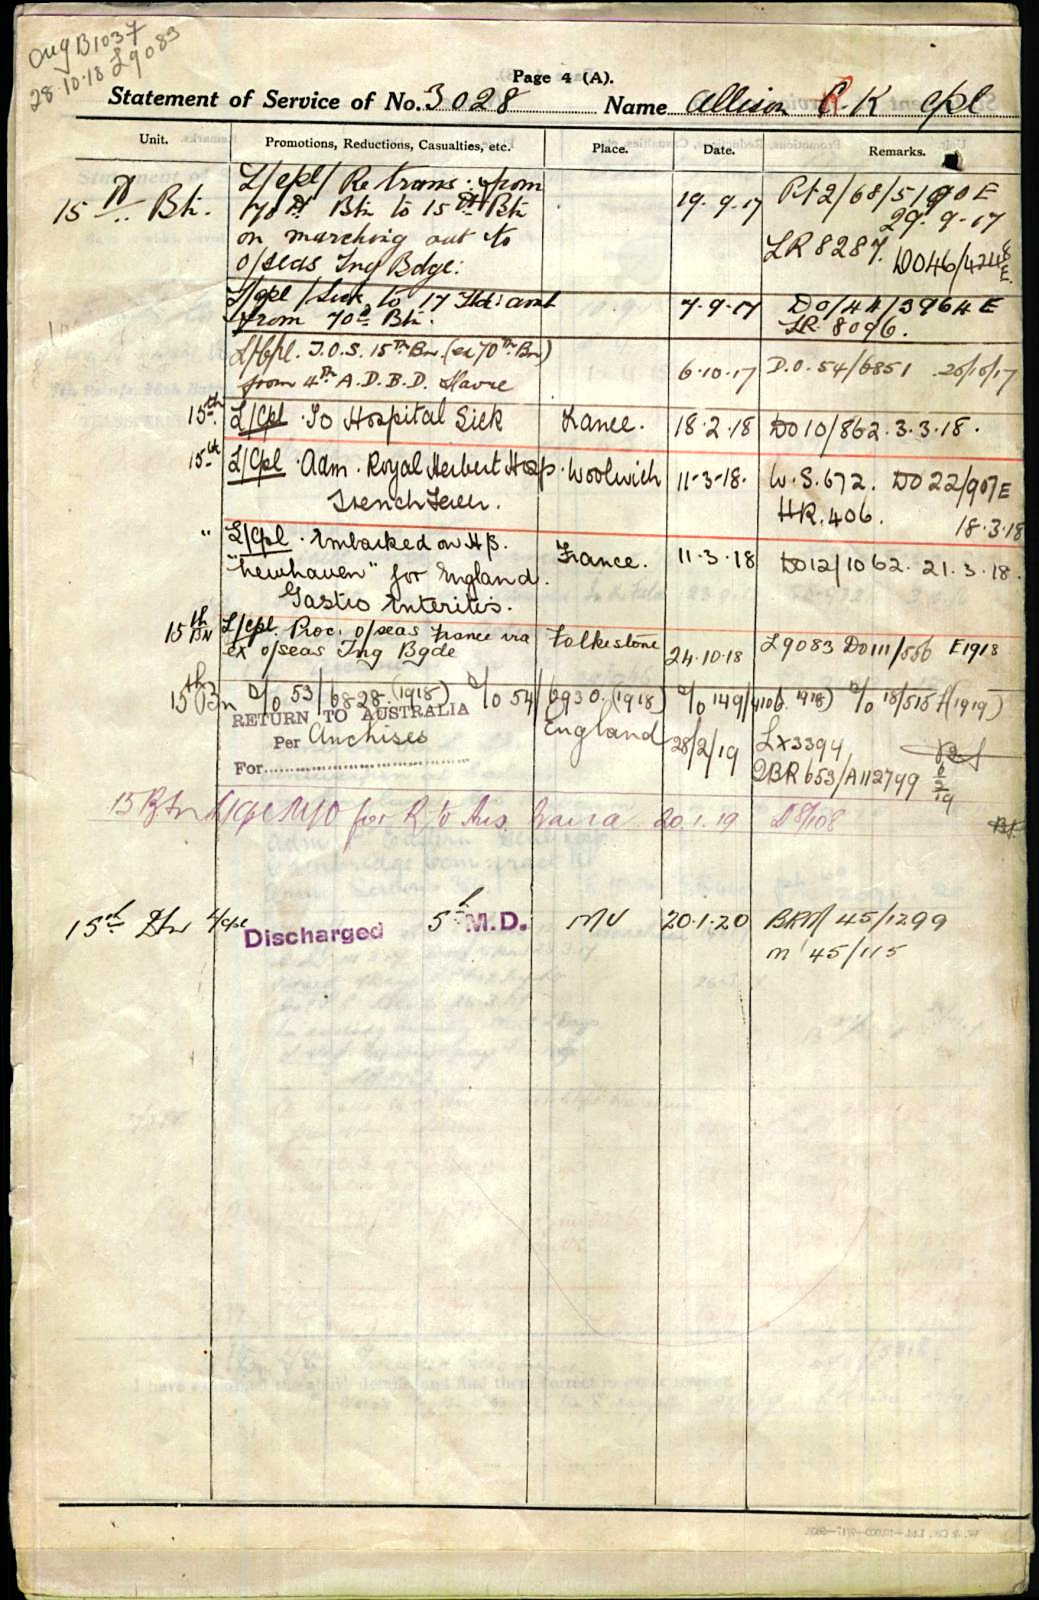 Orig B1037
28.10.18 L9083
Page 4 (A).
Statement of Service of No. 3028 Name Allison R. K Cpl
Unit. Promotions, Reductions, Casualties, etc. Place. Date. Remarks.
15th Btn. L/Cpl/ Re trans: from
70th Btn to 15th Btn
on marching out to
o/seas Tng Bdge:
19.9.17
Pt 2/68/5190 E
29.9.17
LR 8287. DO46/4248E
L/Cpl /Sick to 17 Fld: amb
from 70th Btn.
7.9.17
DO/44/3964E
LR. 8096.
L/Cpl. T.O.S. 15th Bn. (ex 70th Bn)
from 4th A.D.B.D. Havre
6.10.17 D.O. 54/6851 20/10/17
15th L/Cpl. To Hospital Sick France. 18.2.18 DO10/862. 3.3.18.
15th L/Cpl. Adm. Royal Herbert Hosp. Woolwich 11-3-18. W.S. 672. DO 22/907E
Trench Fever. HR. 406. 18.3.18
" L/Cpl. Embarked on H S.
"Newhaven" for England.
Gastro Enteritis.
France. 11.3.18 DO12/1062. 21.3.18.
15th BN L/Cpl. Proc. o/seas France via
ex o/seas Tng Bgde
Folkestone 24.10.18 L9083 DO111/556 E1918
15th Bn D/O 53/6828 (1918) D/O 54/6930 (1918) D/O 149/4106 1918) D/O 18/515 A(1919)
RETURN TO AUSTRALIA
Per Anchises
For
England 28/2/19 LX3394
QBR 653/A112799
15 Btn L/Cpl for R to Aus. 20.1.19
15th Btn L/Cpl Discharged 5th M.D. MU 20.1.20 45/1299
m 45/115